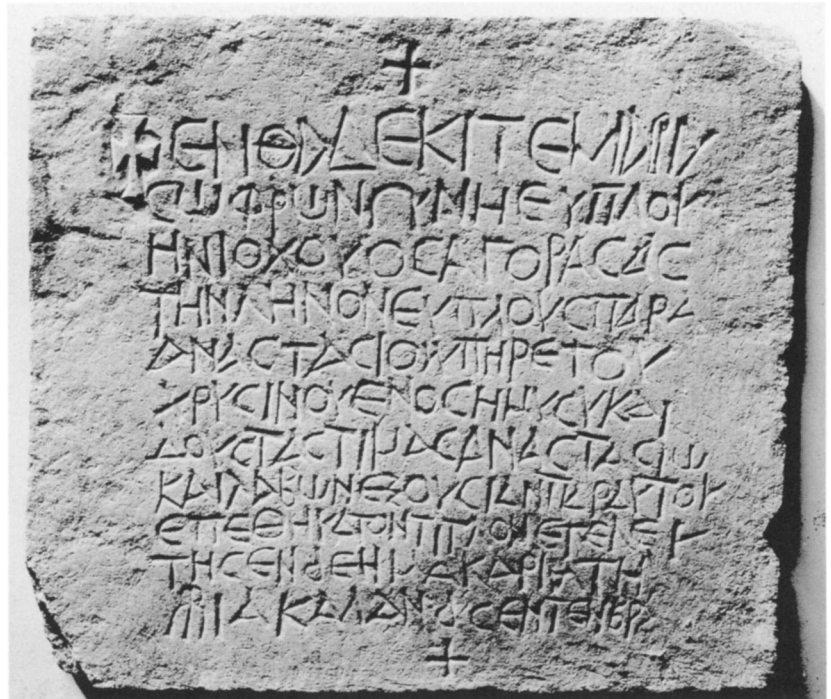 +
☩ ΕΝΘΑΔΕ ΚΙΤΕ ΜΑΡΙΑ
ϹΩΦΡΩΝ ΓΥΝΗ ΕΥΠΛΟΥ
ΗΝΙΟΧΟΥ ΟϹ ΑΓΟΡΑϹΑϹ
ΤΗΝ ΛΗΝΟΝ ΕΥΠΛΟΥϹ ΠΑΡΑ
ΑΝΑϹΤΑϹΙΟΥ ΥΠΗΡΕΤΟΥ
ΧΡΥϹΙΝΟΥ ΕΝΟϹ ΗΜΥϹΥ ΚΑΙ
ΔΟΥϹ ΤΑϹ ΤΙΜΑϹ ΑΝΑϹΤΑϹΙΩ
ΚΑΙ ΛΑΒΩΝ ΕΞΟΥϹΙΑΝ ΠΑΡ ΑΥΤΟΥ
ΕΠΕΘΗΚΑ ΤΟΝ ΤΙΤΛΟΝ ΕΤΕΛΕΥ
ΤΗϹΕΝ ΔΕ Η ΜΑΚΑΡΙΑ ΤΗ
ΠΡΟ ΜΙΑ ΚΑΛΑΝΔ ϹΕΠΤΕΝΒΡ
+